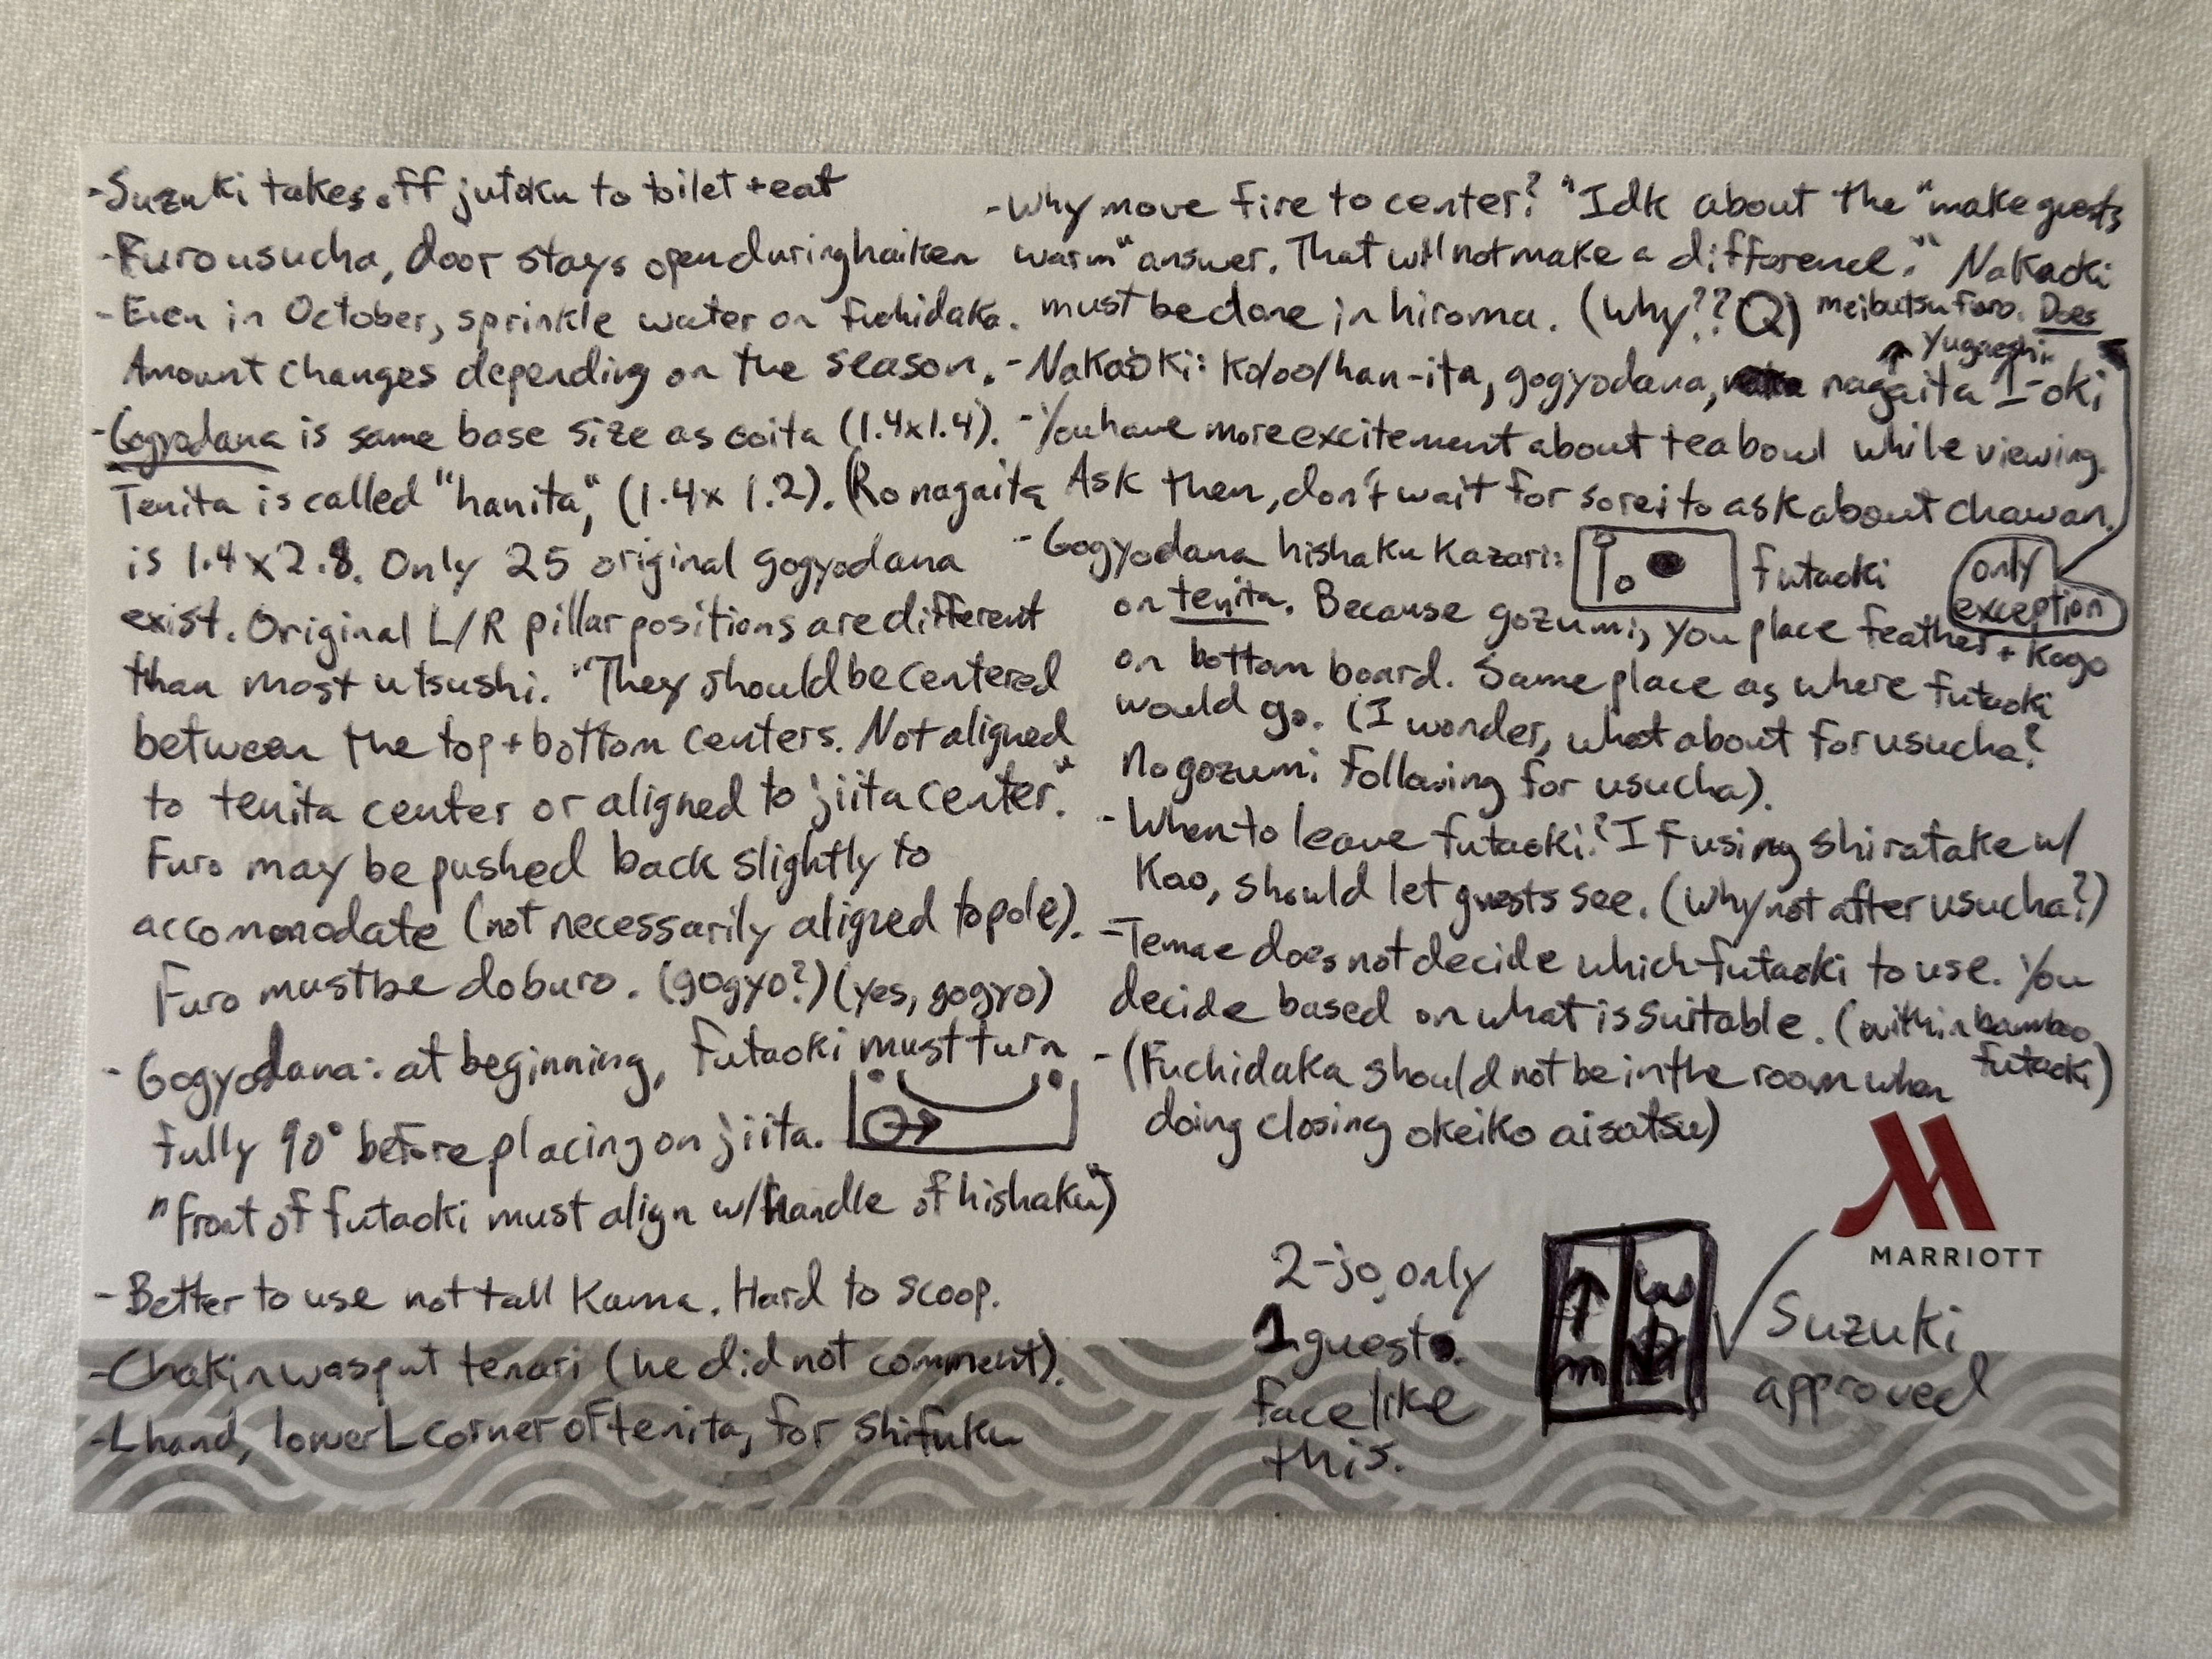 -Suzuki takes off jutoku to toilet + eat
-Furo usucha, door stays open during haiken
-Even in October, sprinkle water on fuchidaka.
Amount changes depending on the season.
-Gogyodana is same base size as ooita (1.4x1.4).
Tenita is called "hanita," (1.4x 1.2). (Ro nagaita
is 1.4x2.8. Only 25 original gogyodana
exist. Original L/R pillar positions are different
than most utsushi. "They should be centered
between the top + bottom centers. Not aligned
to tenita center or aligned to jiita center."
Furo may be pushed back slightly to
accommodate (not necessarily aligned to pole).
Furo must be doburo. (gogyo?) (yes, gogyo)
- Gogyodana: at beginning, futaoki must turn
fully 90° before placing on jiita.
"front of futaoki must align w/handle of hishaku")
- Better to use not tall Kama. Hard to scoop.
-Chakin was put tenari (he did not comment).
-L hand, lower L corner of tenita, for shifuku
-Why move fire to center? "Idk about the "make guests
warm" answer. That will not make a difference." Nakaoki
must be done in hiroma. (Why?? Q) meibutsu furo. Does
yugaeshi.
-Nakaoki: Ko/oo/han-ita, gogyodana, nagaita 1-oki
-You have more excitement about tea bowl while viewing.
Ask then, don't wait for sorei to ask about chawan.
-Gogyodana hishaku Kazari: futaoki
only
exception
on tenita. Because gozumi, you place feather + Kogo
on bottom board. Same place as where futaoki
would go. (I wonder, what about for usucha?
No gozumi following for usucha).
-When to leave futaoki? If using shiratake w/
Kao, should let guests see. (Why not after usucha?)
-Temae does not decide which futaoki to use. You
decide based on what is suitable. (within bamboo
futaoki)
-(Fuchidaka should not be in the room when
doing closing okeiko aisatsu)
MARRIOTT
2-jo, only
1 guest.
face like
this.
Suzuki
approved